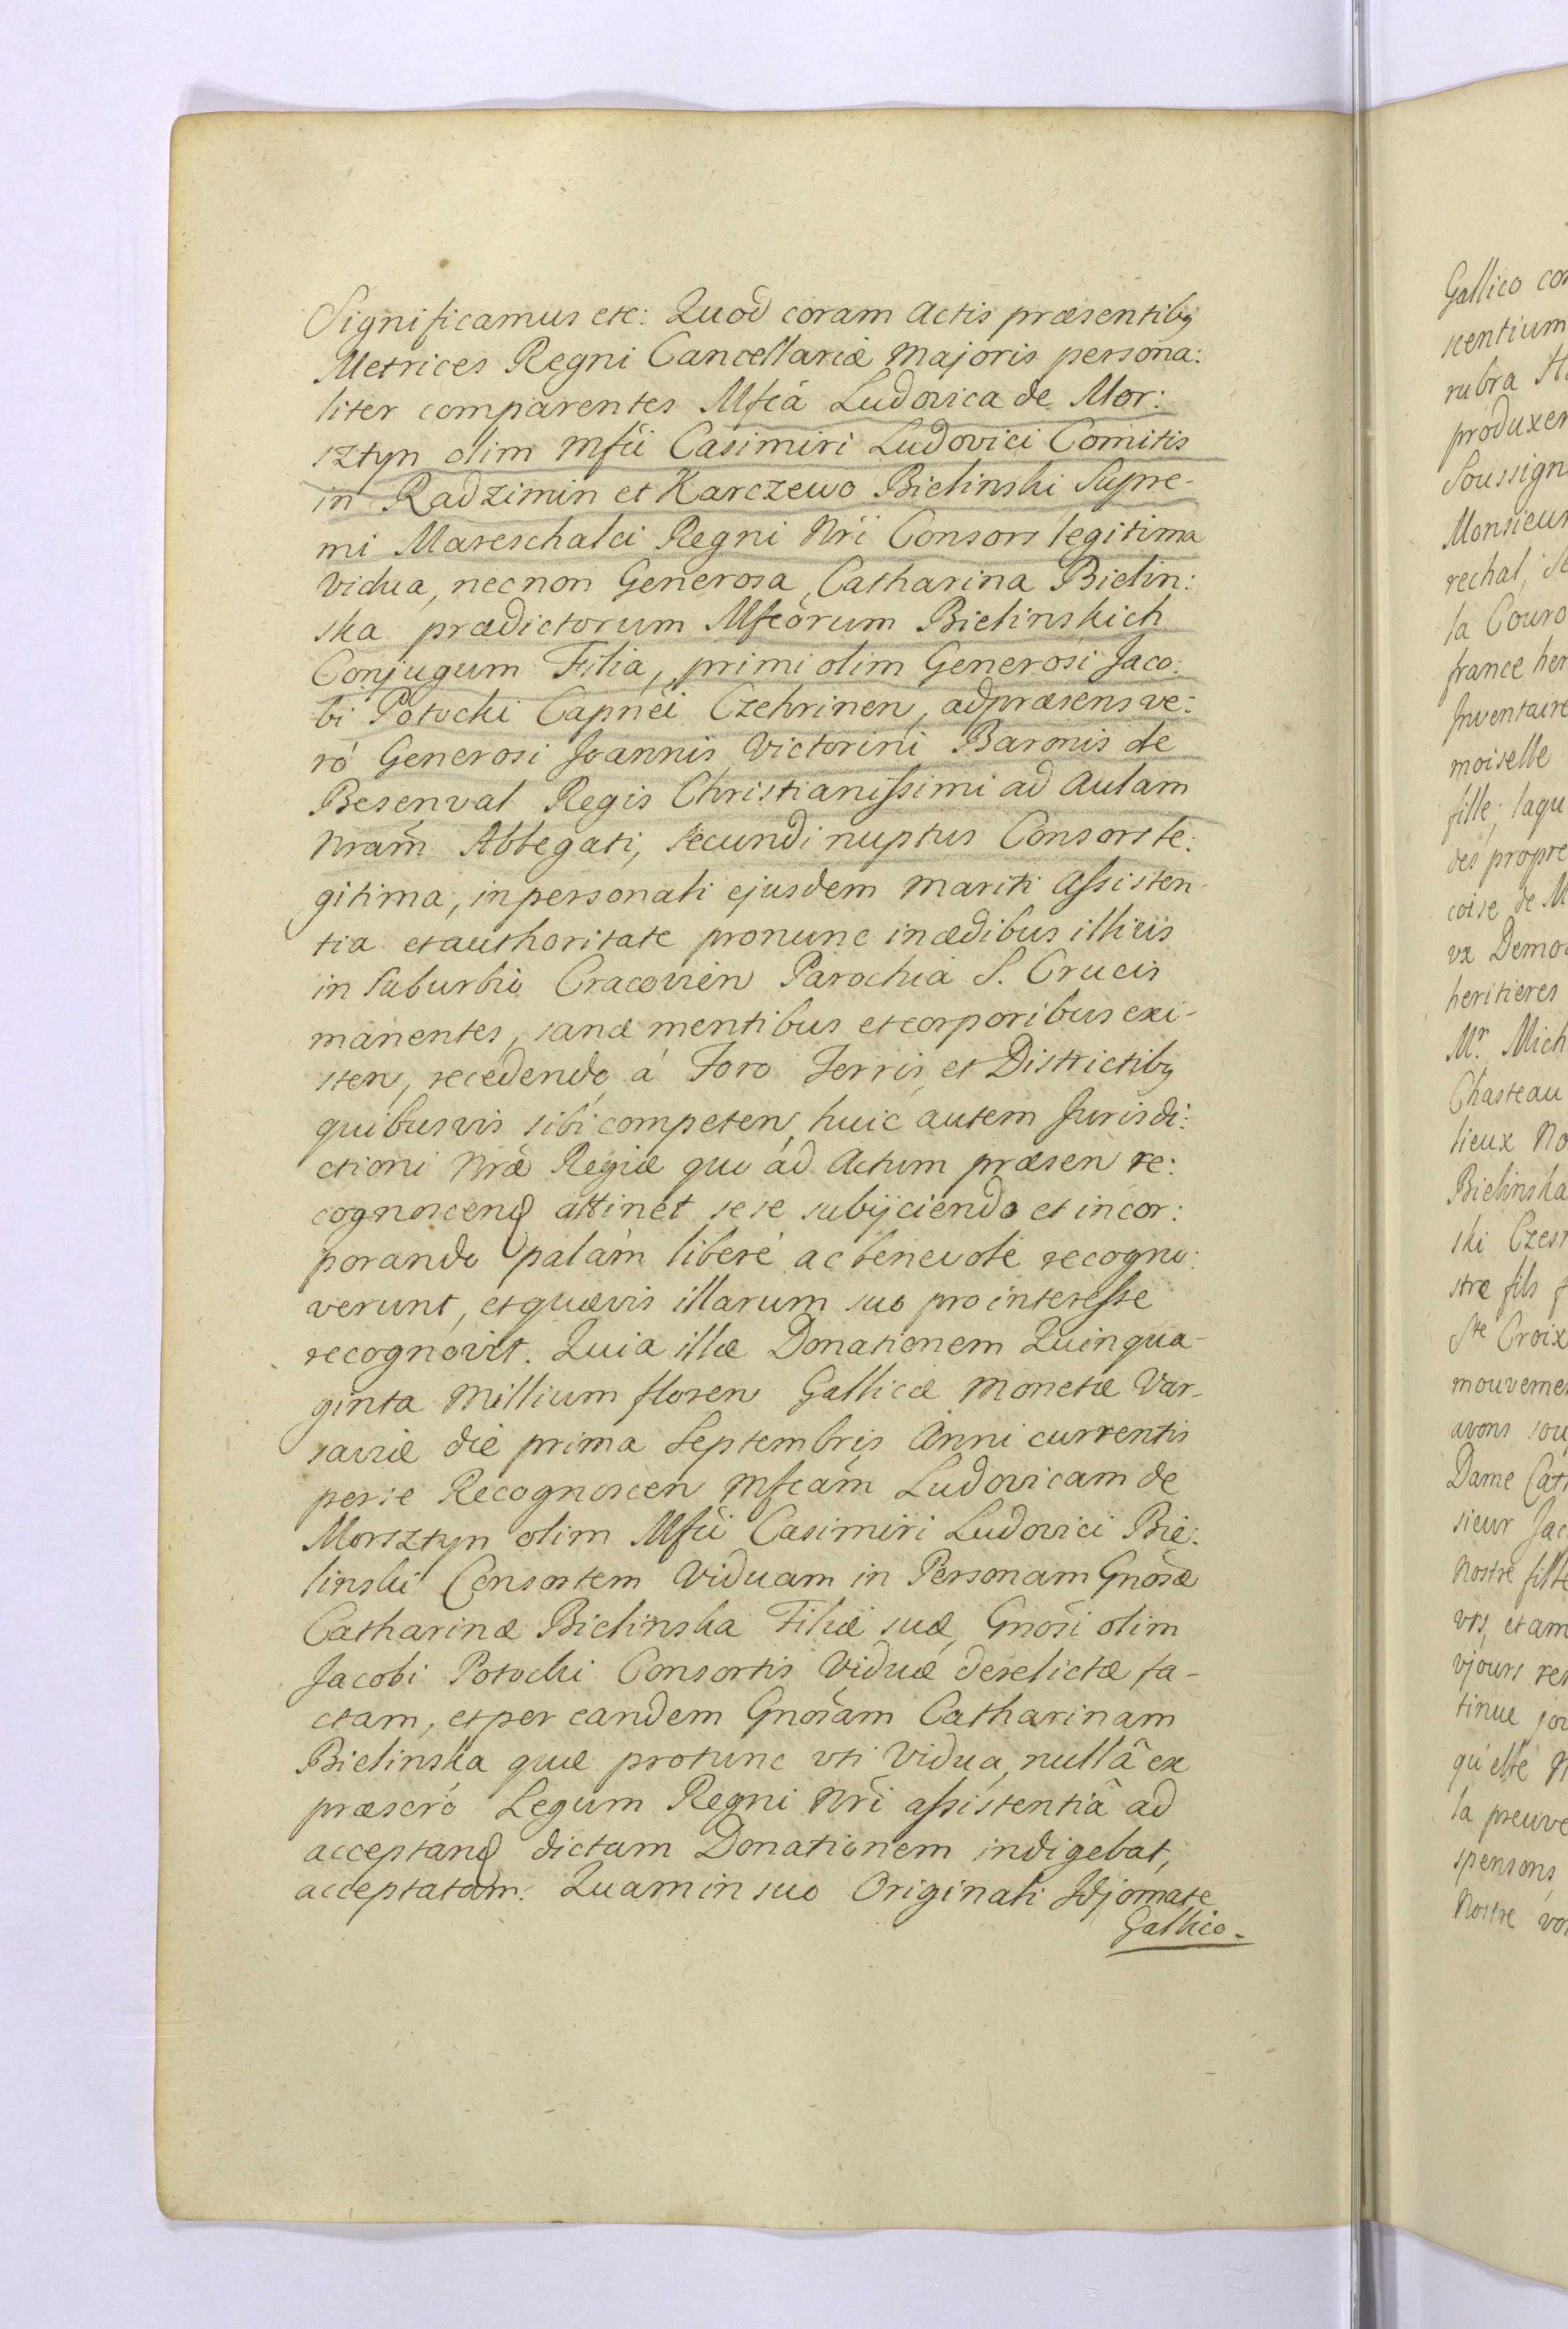 Significamus etc: Quod coram Actis præsentibq
Metrices Regni Cancellariæ Majoris persona:
liter comparentes Mfcà Ludovica de Mor:
sztyn olim Mfci Casimiri Ludovici Comitis
in Radzimin et Karczewo Bielinski Supre-
mi Mareschalci Regni Nri Consors legitima
vidua, necnon Generosa Catharina Bielin:
ska prædictorum Mfcorum Bielinskich
Conjugum Filia, primi olim Generosi Jaco:
bi Potocki Capnei Czehrinen, adpræsens ve:
rò Generosi Joannis Victorini Baronis de
Besenval Regis Christianissimi ad Aulam
Nram Ablegati, secundi nuptus Consors le:
gitima, in personali ejusdem Mariti Assisten-
tia et authoritate pronunc in ædibus illius
in Suburbio Cracovien Parochia S. Crucis
manentes, sanæ mentibus et corporibus exi-
sten, recedendo à Foro Terris et Districtibq
quibusvis sibi competen, huic autem Jurisdi:
ctioni Nræ Regiæ quo ad Actum præsen re:
cognoscend attinet sese subijciendo et incor:
porando palam liberè ac benevolè recogno:
verunt, et quævis illarum suo pro interesse
recognovit. Quia illæ Donationem Quinqua-
ginta Millium floren Gallicæ Monetæ Var-
saviæ die prima Septembris Anni currentis
per se Recognoscen Mfcam Ludovicam de
Morsztyn olim Mfci Casimiri Ludovici Bie:
linski Consortem Viduam in Personam Gnosæ
Catharinæ Bielinska Filiæ suæ, Gnosi olim
Jacobi Potocki Consortis Viduæ derelictæ fa-
ctam, et per eandem Gnosam Catharinam
Bielinska quæ protunc vti Vidua, nullâ ex
præscró Legum Regni Nri assistentiâ ad
acceptand dictam Donationem indigebat,
acceptatam. Quam in suo Originali Idjomate
Gallico.
Gallico
scentium
rubra
produxer
Soussign
Monsieur
rechal,
la Couro
france her
Inventaire
moiselle
fille, laqu
des propre
coise de M
vx Demo
heritieres
Mr. Mich
Chasteau
lieux No
Bielinska
ski Czes
stre fils f
Ste Croix
mouvemen
avons sou
Dame Cat
sieur Jac
Nostre fille
vrs, et am
vjours re
tinue jou
qu'elle
la preuve
spensons,
Nostre